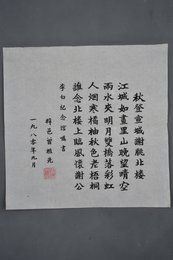 秋登宣城謝朓北樓
江城如畫里山晚望晴空
雨水夾明月雙橋落彩虹
人烟寒橘柚秋色老梧桐
誰念北樓上臨風懷謝公
李白紀念館囑書
一九八零年九月